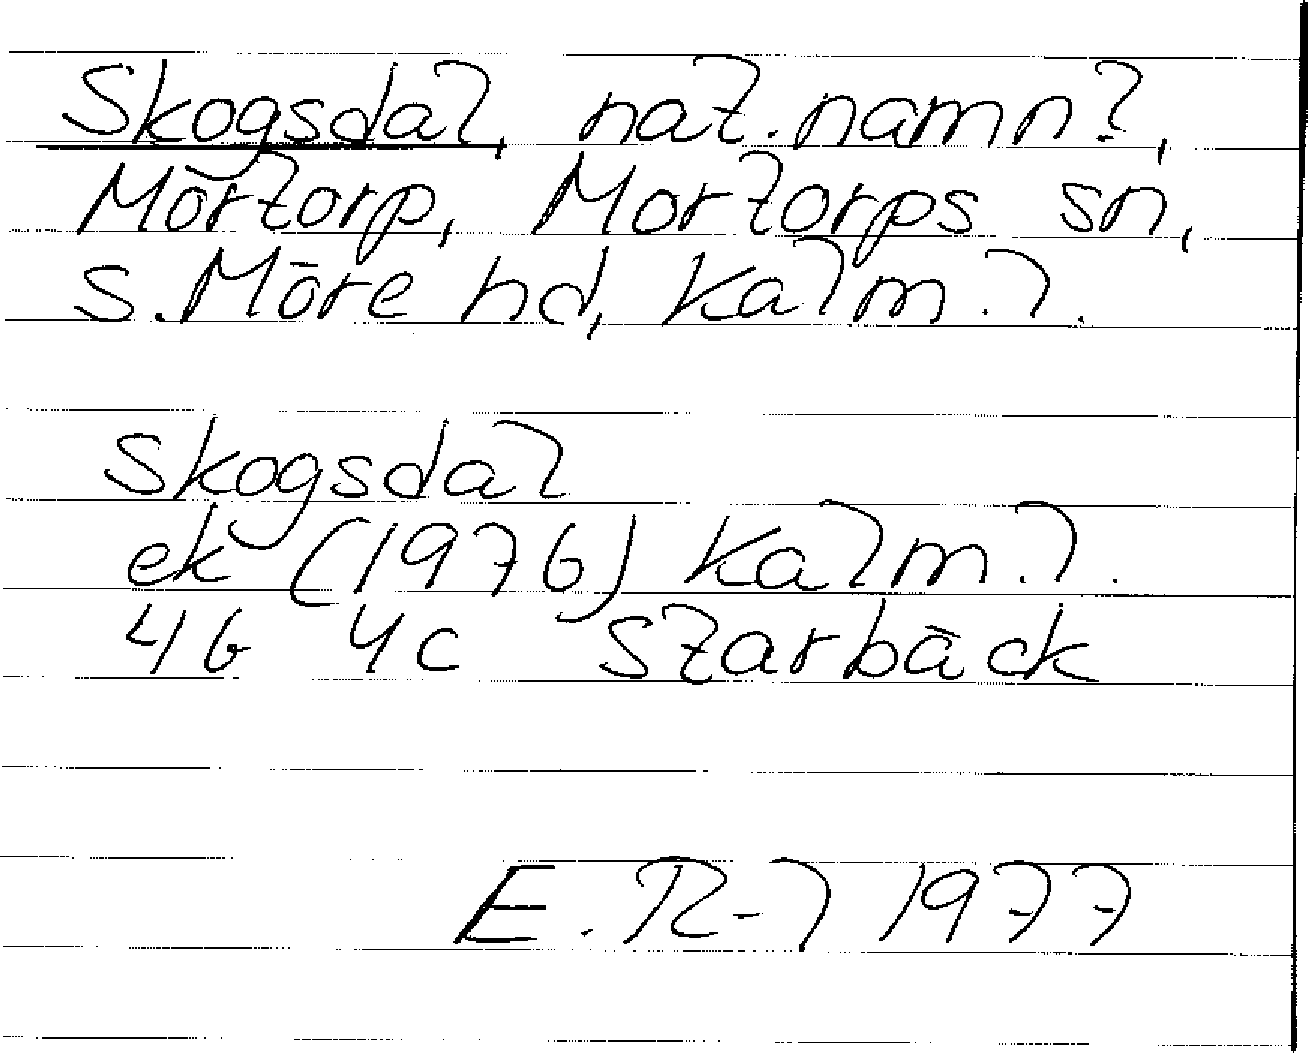 Skogsdal, nat.namn?,
Mörtorp, Mortorps sn,
S. Möre hd, Kalm. l.
Skogsdal
ek (1976) Kalm. l.
4G 4c Starbäck
E. R-l 1977